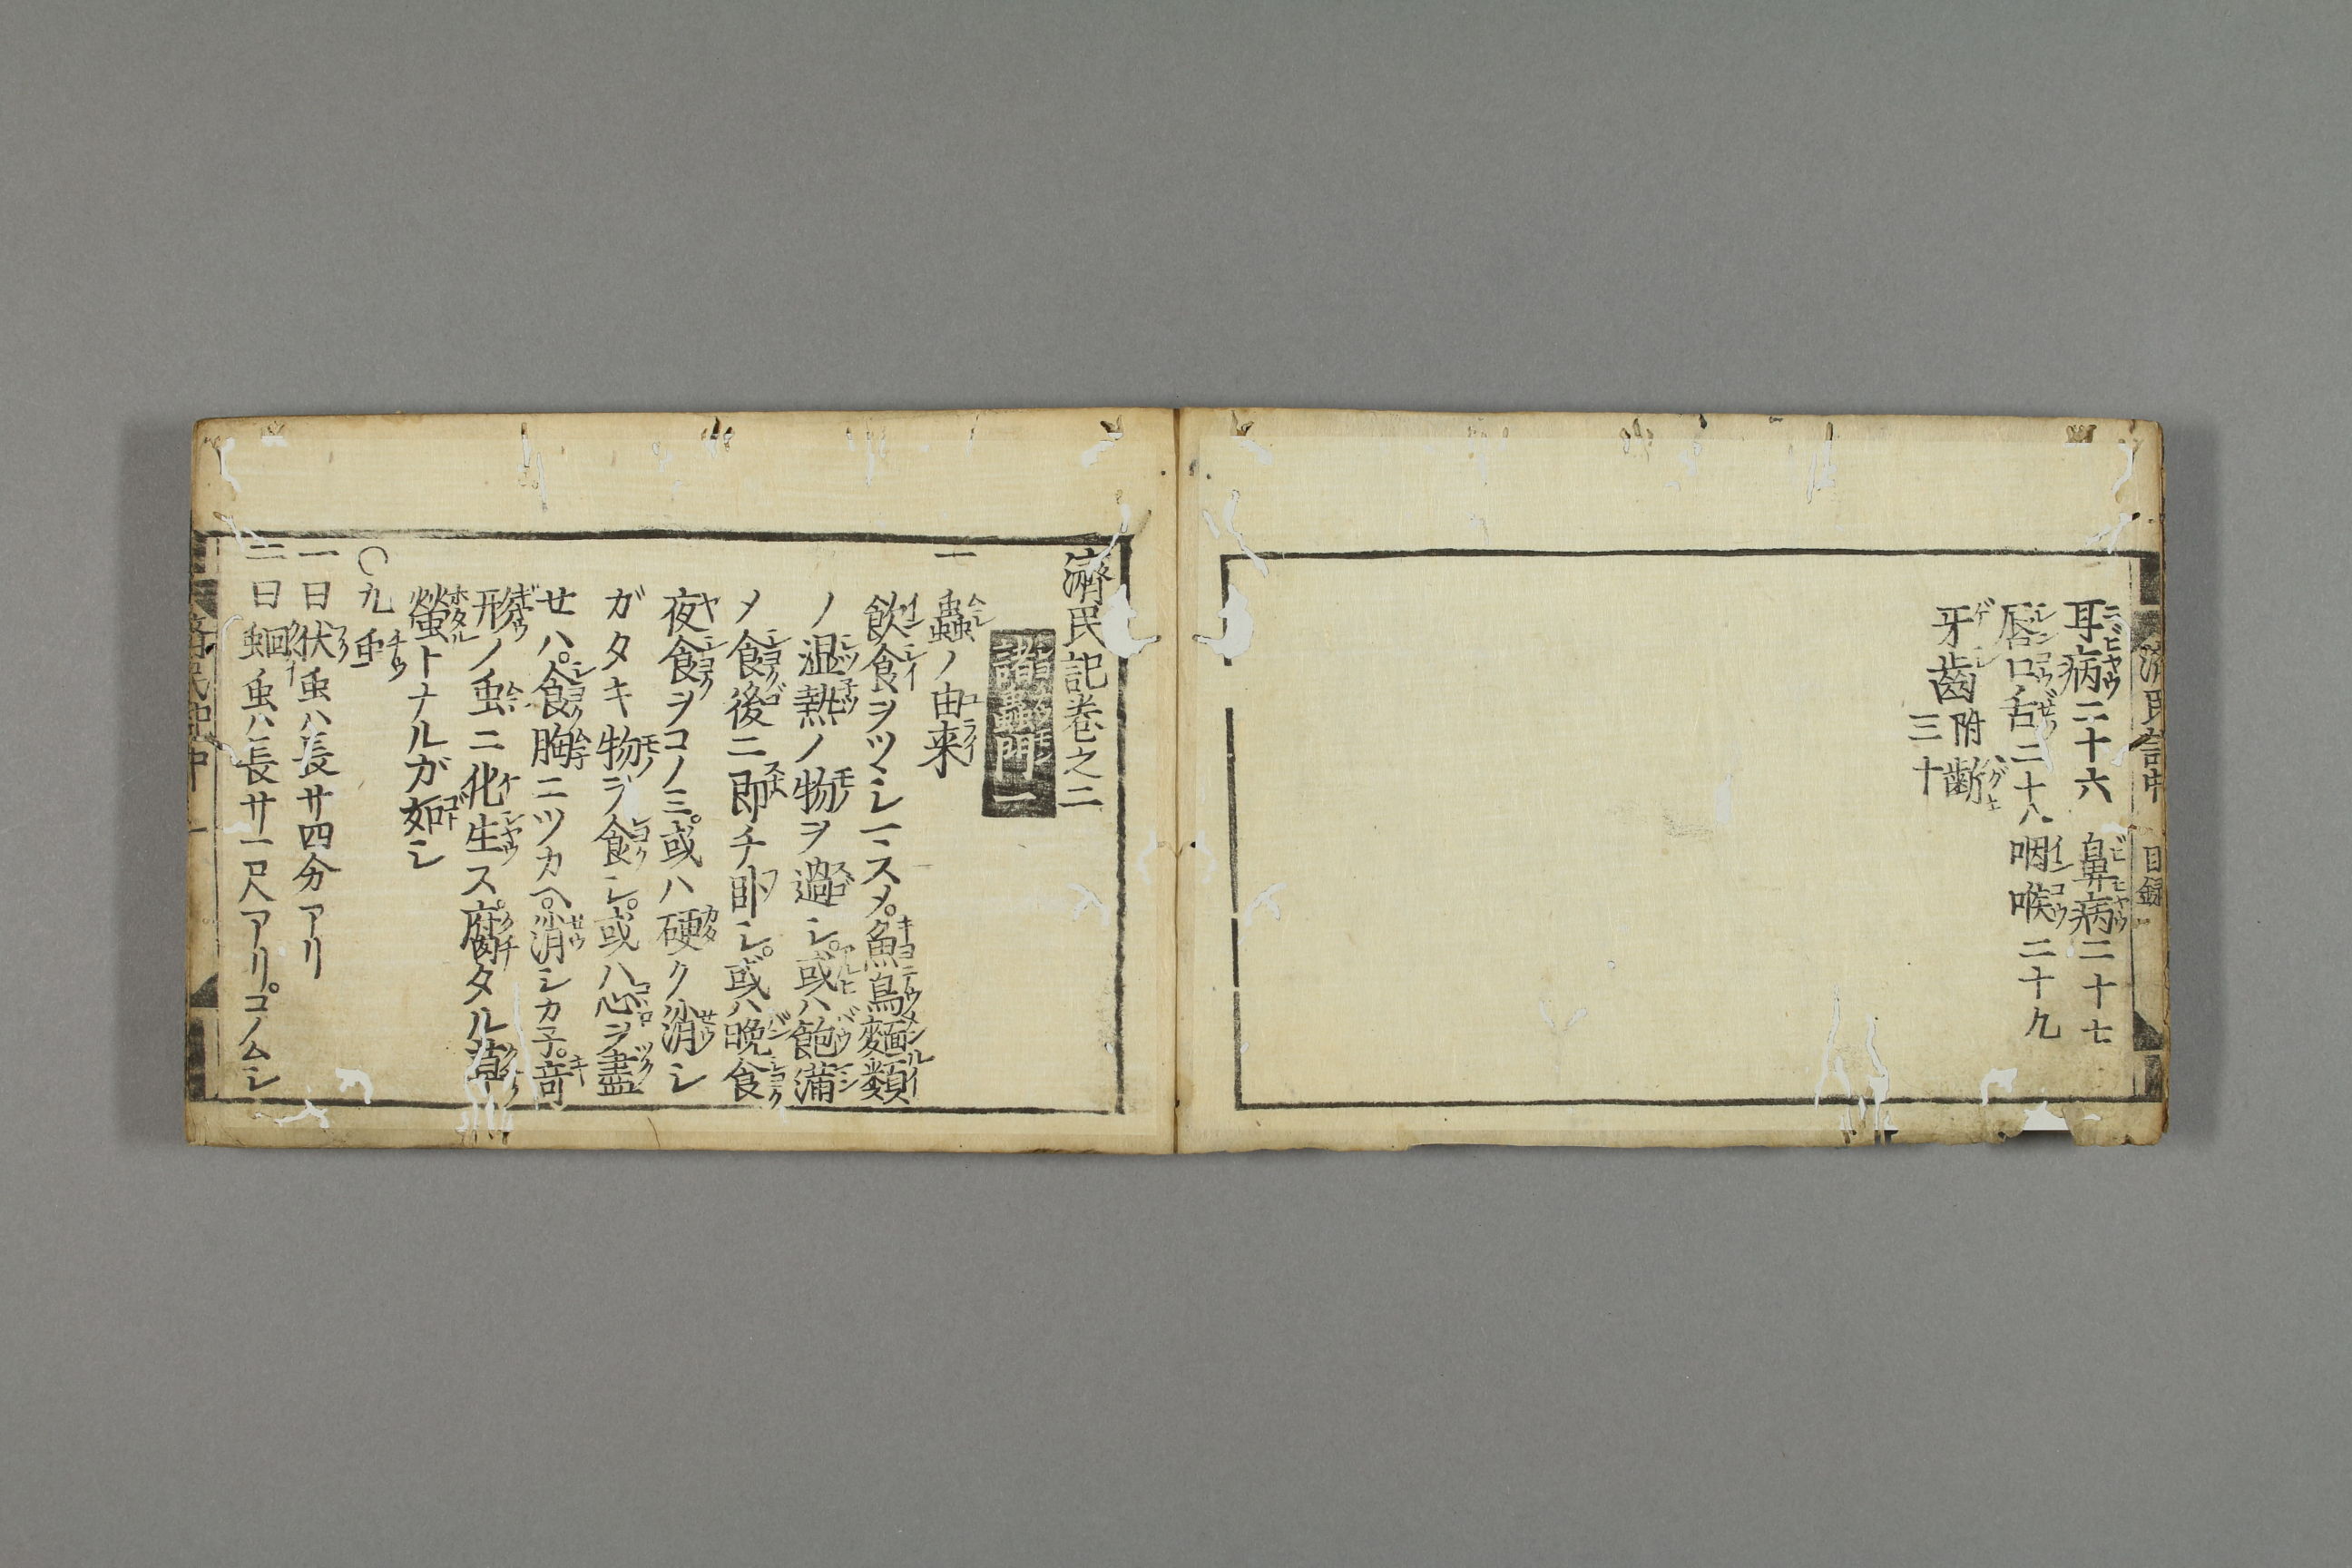 濟民記中
目録
耳病二十六 鼻病二十七
唇口舌二十八 咽喉二十九
牙齒附齗三十
濟民記巻之二
諸蟲門一
一 蟲ノ由来
飲食ヲツヽシマスメ。魚鳥麵類
ノ温熱ノ物ヲ過シ。或ハ飽満
メ食後ニ即チ卧シ。或ハ晩食
夜食ヲコノミ。或ハ硬ク消シ
ガタキ物ヲ食シ。或ハ心ヲ盡
セハ。食胸ニツカヘ。消シカ子。奇
形ノ虫ニ化生ス。腐タル草
螢トナルガ如シ
〇九虫
一曰伏虫ハ長サ四分アリ
二曰蛔虫ハ長サ一尺アリ。コノムシ